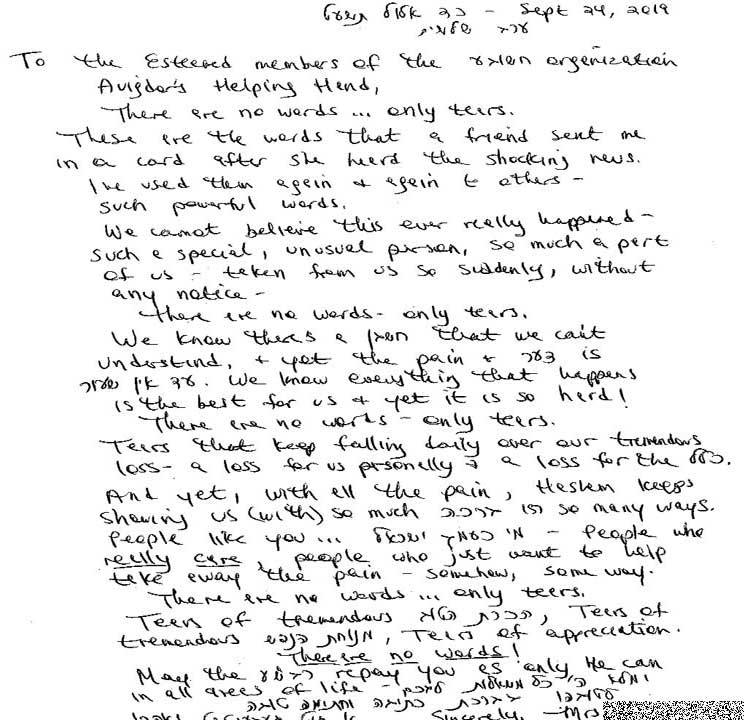 כד אלול תשעט - Sept 24, 2019
To the Esteemed members of the organization
Avigdor's Helping Hand,
There are no words ... only tears.
These are the words that a friend sent me
in a card after she heard the shocking news.
I've used them again & again to others -
such powerful words.
We cannot believe this ever really happened -
such a special, unusual person, so much a part
of us - taken from us so suddenly, without
any notice -
there are no words - only tears.
We know there's a that we can't
understand, & yet the pain & צער is
עד אין. We know everything that happens
is the best for us & yet it is so hard!
There are no words - only tears.
Tears that keep falling daily over our tremendous
loss - a loss for us personally & a loss for the כלל.
And yet, with all the pain, Hashem keeps
showing us (with) so much in so many ways.
People like you ... מי כעמך ישראל - People who
really care, people who just want to help
take away the pain - somehow, some way.
There are no words ... only tears.
Tears of tremendous הכרת הטוב, Tears of
tremendous הנפש, Tears of appreciation.
There are no words!
May the repay you as only He can
in all areas of life - כל
כתיבה וחתימה טובה
Sincerely, Mrs